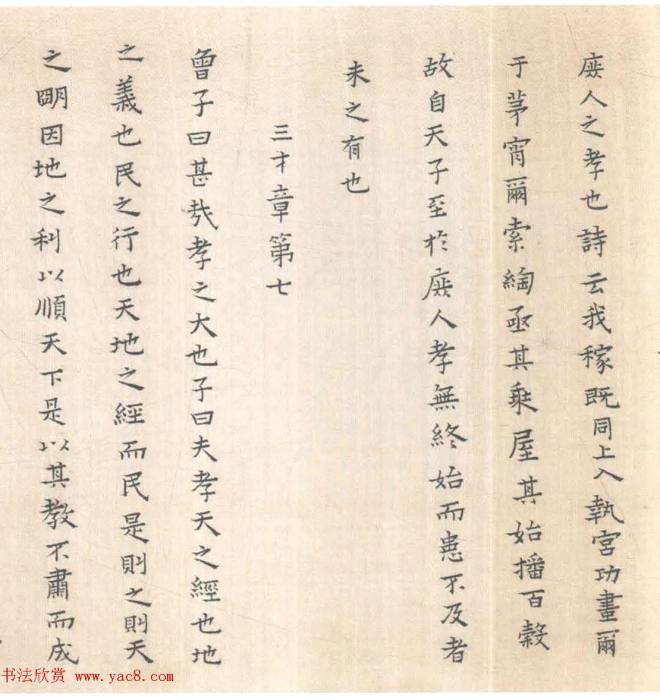 庶人之孝也詩云我稼既同上入執宮功晝爾
于茅宵爾索綯亟其乘屋其始播百穀
故自天子至於庶人孝無終始而患不及者
未之有也
三才章第七
曾子曰甚哉孝之大也子曰夫孝天之經也地
之義也民之行也天地之經而民是則之則天
之明因地之利以順天下是以其教不肅而成
书法欣赏 www.yac8.com